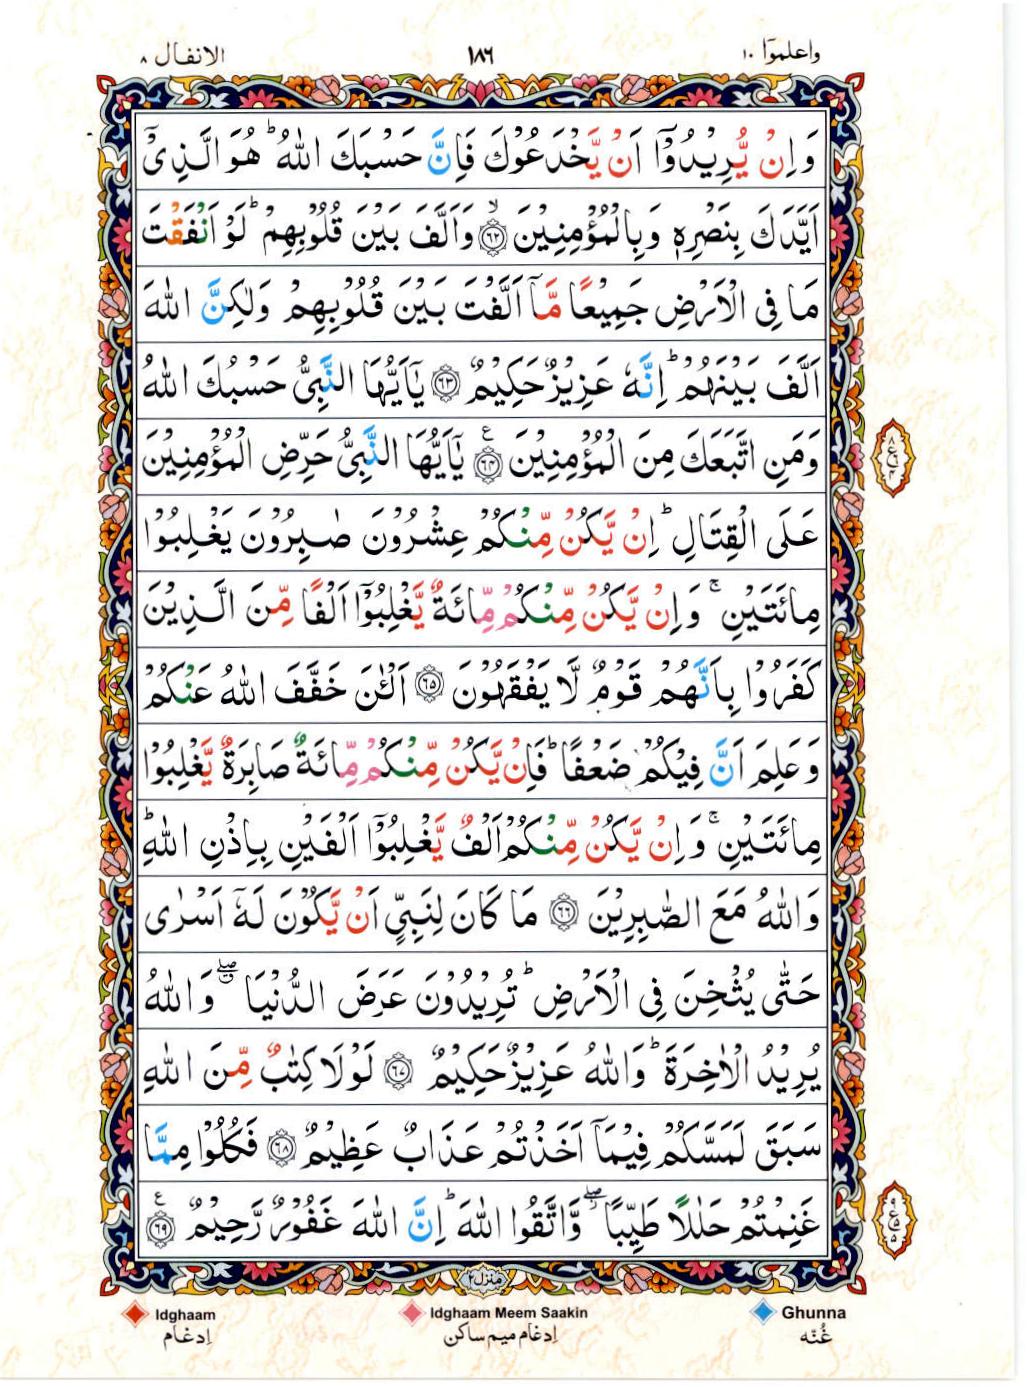 الانفال ٨
١٨٦
واعلموۤا ١٠
وَاِنْ يُّرِيْدُوْۤا اَنْ يَّخْدَعُوْكَ فَاِنَّ حَسْبَكَ اللّٰهُ ؕ هُوَ الَّذِيْۤ
اَيَّدَكَ بِنَصْرِهٖ وَبِالْمُؤْمِنِيْنَ ۙ﴿۶۲﴾ وَاَلَّفَ بَيْنَ قُلُوْبِهِمْ ؕ لَوْ اَنْفَقْتَ
مَا فِى الْاَرْضِ جَمِيْعًا مَّاۤ اَلَّفْتَ بَيْنَ قُلُوْبِهِمْ وَلٰكِنَّ اللّٰهَ
اَلَّفَ بَيْنَهُمْ ؕ اِنَّهٗ عَزِيْزٌ حَكِيْمٌ ﴿۶۳﴾ يٰۤاَيُّهَا النَّبِىُّ حَسْبُكَ اللّٰهُ
وَمَنِ اتَّبَعَكَ مِنَ الْمُؤْمِنِيْنَ ﴿۶۴﴾ع يٰۤاَيُّهَا النَّبِىُّ حَرِّضِ الْمُؤْمِنِيْنَ
عَلَى الْقِتَالِ ؕ اِنْ يَّكُنْ مِّنْكُمْ عِشْرُوْنَ صٰبِرُوْنَ يَغْلِبُوْا
مِائَتَيْنِ ۚ وَاِنْ يَّكُنْ مِّنْكُمْ مِّائَةٌ يَّغْلِبُوْۤا اَلْفًا مِّنَ الَّذِيْنَ
كَفَرُوْا بِاَنَّهُمْ قَوْمٌ لَّا يَفْقَهُوْنَ ﴿۶۵﴾ اَلْـٰٔنَ خَفَّفَ اللّٰهُ عَنْكُمْ
وَعَلِمَ اَنَّ فِيْكُمْ ضَعْفًا ؕ فَاِنْ يَّكُنْ مِّنْكُمْ مِّائَةٌ صَابِرَةٌ يَّغْلِبُوْا
مِائَتَيْنِ ۚ وَاِنْ يَّكُنْ مِّنْكُمْ اَلْفٌ يَّغْلِبُوْۤا اَلْفَيْنِ بِاِذْنِ اللّٰهِ ؕ
وَاللّٰهُ مَعَ الصّٰبِرِيْنَ ﴿۶۶﴾ مَا كَانَ لِنَبِىٍّ اَنْ يَّكُوْنَ لَهٗۤ اَسْرٰى
حَتّٰى يُثْخِنَ فِى الْاَرْضِ ؕ تُرِيْدُوْنَ عَرَضَ الدُّنْيَا ۖ وَاللّٰهُ
يُرِيْدُ الْاٰخِرَةَ ؕ وَاللّٰهُ عَزِيْزٌ حَكِيْمٌ ﴿۶۷﴾ لَوْلَا كِتٰبٌ مِّنَ اللّٰهِ
سَبَقَ لَمَسَّكُمْ فِيْمَاۤ اَخَذْتُمْ عَذَابٌ عَظِيْمٌ ﴿۶۸﴾ فَكُلُوْا مِمَّا
غَنِمْتُمْ حَلٰلًا طَيِّبًا ۖ وَّاتَّقُوا اللّٰهَ ؕ اِنَّ اللّٰهَ غَفُوْرٌ رَّحِيْمٌ ﴿۶۹﴾ع
منزل ٢
Idghaam
اِدغام
Idghaam Meem Saakin
اِدغام میم ساکن
Ghunna
غُنّه